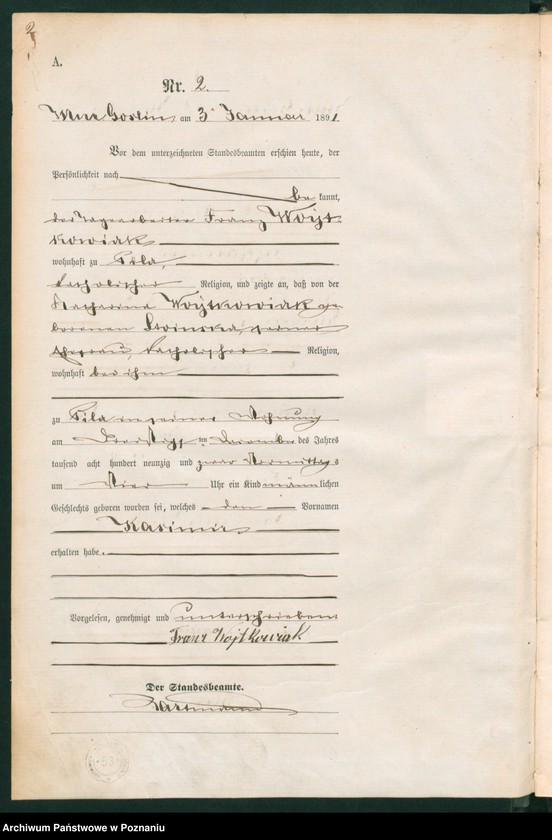 2
A.
Nr. 2.
Mur. Goslin am 3. Januar 1891.
Vor dem unterzeichneten Standesbeamten erschien heute, der
Persönlichkeit nach
be kannt,
der Tagearbeiter Franz Wojt-
kowiak
wohnhaft zu Pila,
katholischer Religion, und zeigte an, daß von der
Katharina Wojtkowiak ge
borenen seiner
Ehefrau, katholischer Religion,
wohnhaft bei ihm
zu Pila in seiner Wohnung
am ten Dezember des Jahres
tausend acht hundert neunzig und zwar Vormittags
um vier Uhr ein Kind männlichen
Geschlechts geboren worden sei, welches den Vornamen
Kasimir
erhalten habe.
Vorgelesen, genehmigt und unterschrieben
Franz Wojtkowiak
Der Standesbeamte.
Hartmann
Archiwum Państwowe w Poznaniu